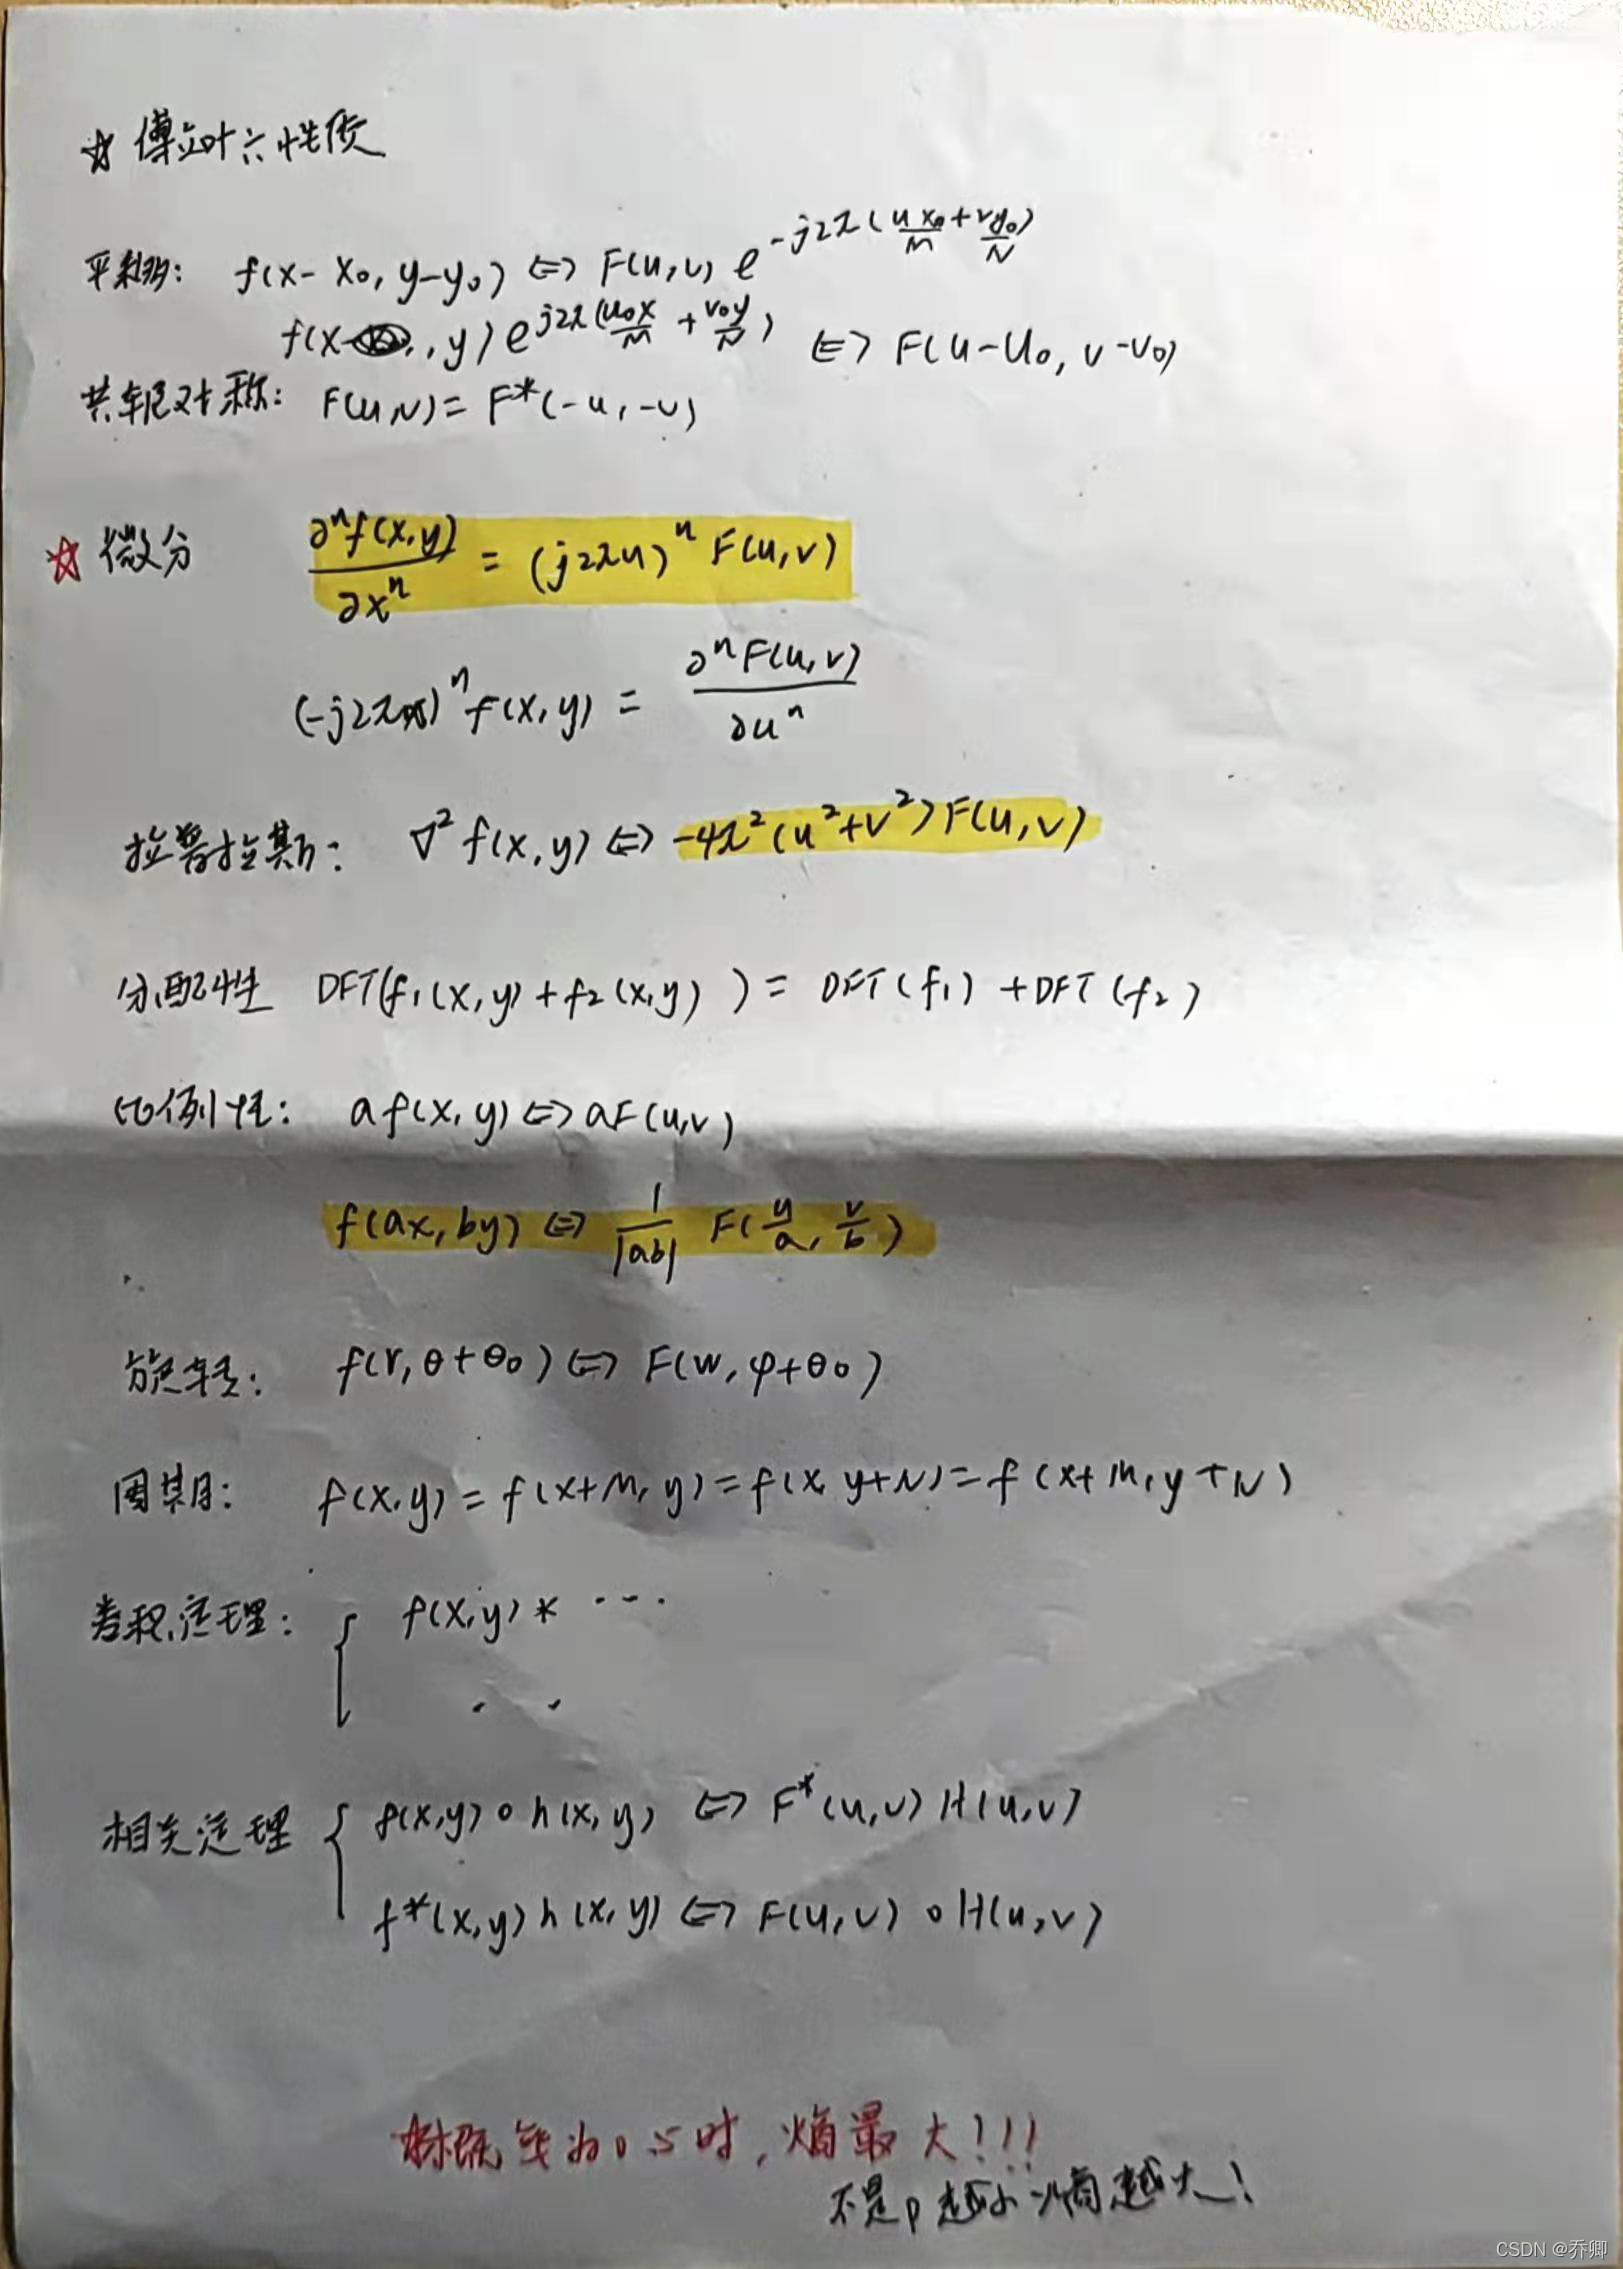 ☆ 傅立叶六性质
平移: f(x-x₀, y-y₀) ⇔ F(u,v) e^{-j2π(ux₀/M + vy₀/N)}
f(x, y) e^{j2π(u₀x/M + v₀y/N)} ⇔ F(u-u₀, v-v₀)
共轭对称: F(u,v) = F*(-u, -v)
☆ 微分 ∂ⁿf(x,y)/∂xⁿ = (j2πu)ⁿ F(u,v)
(-j2πx)ⁿ f(x,y) = ∂ⁿF(u,v)/∂uⁿ
拉普拉斯: ∇² f(x,y) ⇔ -4π²(u²+v²)F(u,v)
分配性 DFT(f₁(x,y)+f₂(x,y)) = DFT(f₁)+DFT(f₂)
比例性: af(x,y) ⇔ aF(u,v)
f(ax, by) ⇔ 1/|ab| F(u/a, v/b)
旋转: f(r, θ+θ₀) ⇔ F(w, φ+θ₀)
周期: f(x,y) = f(x+M, y) = f(x, y+N) = f(x+M, y+N)
卷积定理: { f(x,y) * ···
· ·
相关定理 { f(x,y)∘h(x,y) ⇔ F*(u,v)H(u,v)
f*(x,y)h(x,y) ⇔ F(u,v)∘H(u,v)
概率为0.5时,熵最大!!!
不是p越小熵越大!
CSDN @乔卿